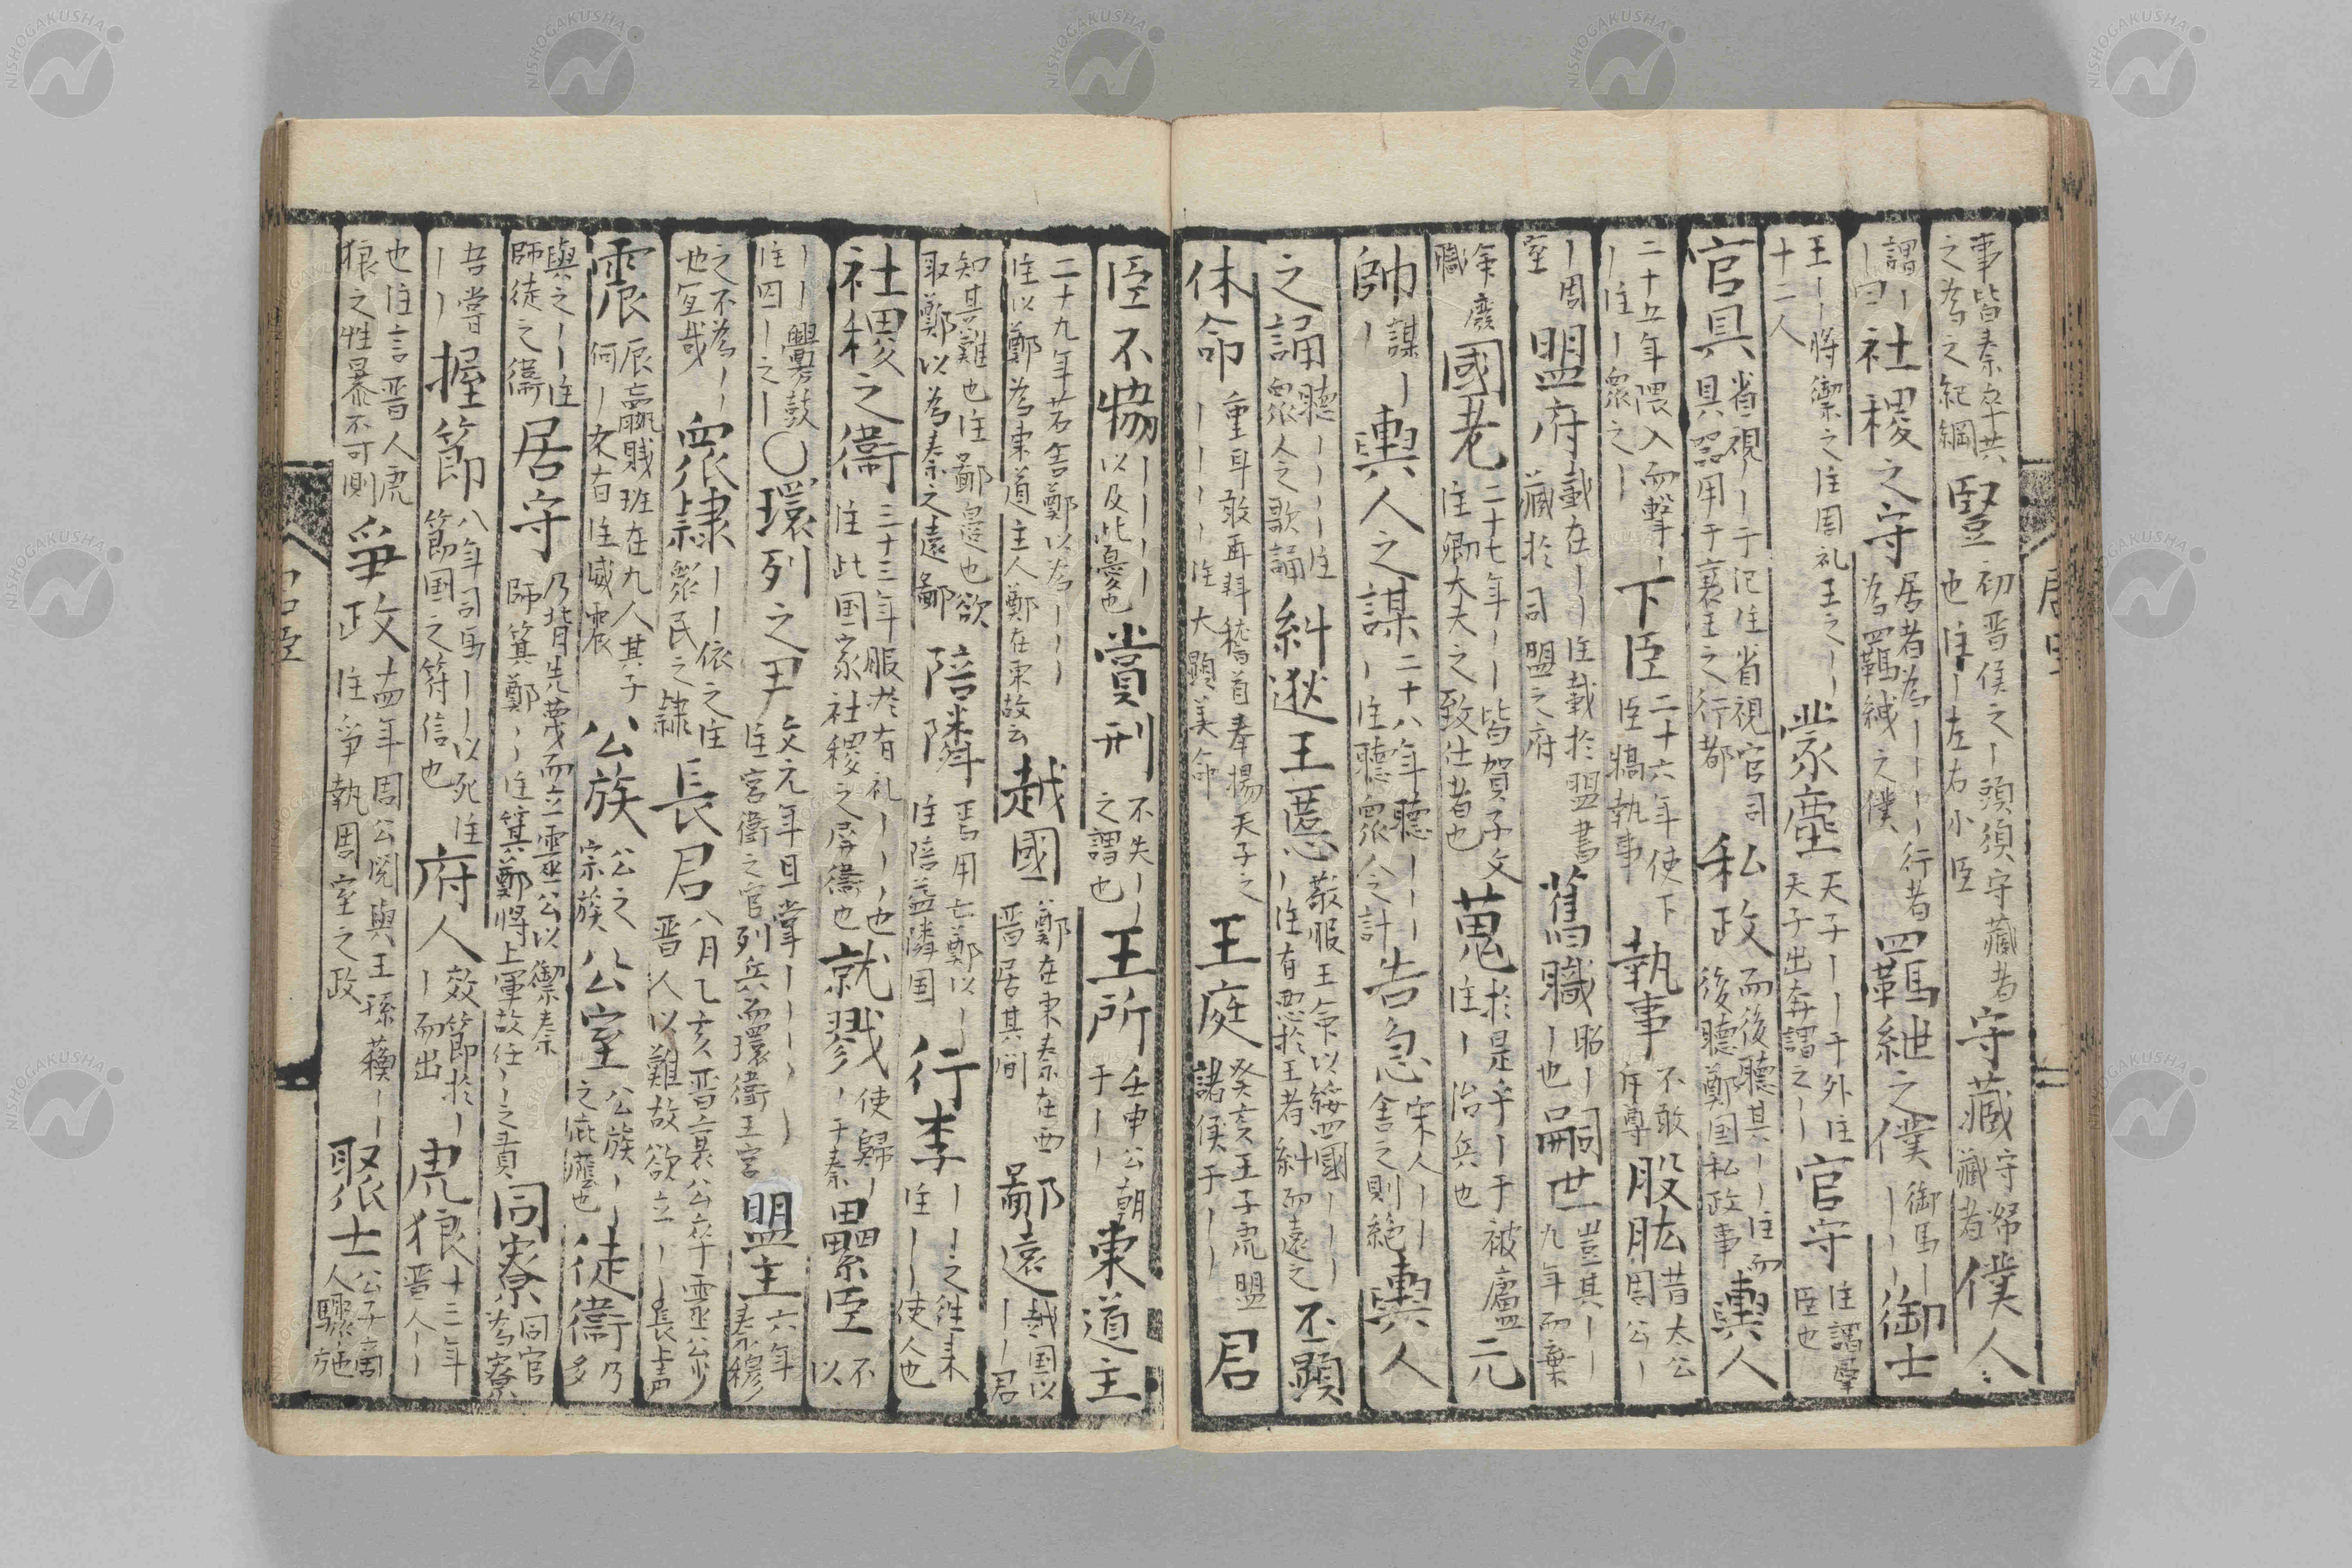 事皆秦卒共之為之紀綱 豎 初晋侯之｜頭須守藏者也注｜左右小臣 守藏 守帑藏者 僕人
謂｜｜曰 社稷之守 居者為｜｜｜｜行者為羈絏之僕 羈紲之僕 御馬｜｜｜ 御士
王｜｜將禦之注周礼王之｜｜十二人 蒙塵 天子｜｜于外注天子出奔謂之｜｜ 官守 注謂羣臣也
官具 省視｜｜于氾注省視官司具器用于襄王之行都 私政 而後聽其｜｜注而後聽鄭国私政事 輿人
二十五年隈入而擊｜｜注｜｜衆之｜ 下臣 二十六年使下臣犒執事 執事 不敢斥尊 股肱 昔太公周公｜
｜周室 盟府 載在｜｜注載於盟書藏於司盟之府 舊職 昭｜｜也 嗣世 豈其｜｜九年而棄
命廢職 國老 二十七年｜｜皆賀子文注卿大夫之致仕者也 蒐 於是乎｜于被廬注｜治兵也 元
帥 謀｜｜ 輿人之謀 二十八年聽｜｜｜｜注聽衆人之計 告急 宋人｜｜舍之則絶 輿人
之誦 聽｜｜｜｜注衆人之歌誦 糾逖王慝 敬服王命以綏四國｜｜｜｜注有惡於王者糾而遠之 丕顯
休命 重耳敢再拜稽首奉揚天子之｜｜｜｜注大顯美命 王庭 癸亥王子虎盟諸侯于｜｜ 君
臣不協 ｜｜｜｜以及此憂也 賞刑 不失｜｜之謂也 王所 壬申公朝于｜｜ 東道主
二十九年若舍鄭以為｜｜｜注以鄭為東道主人鄭在東故云 越國 鄭在東秦在西晋居其間 鄙遠 越国以｜｜君
知其難也注鄙邊也欲取鄭以為秦之遠鄙 陪隣 焉用亡鄭以｜｜注陪益隣国 行李 ｜｜之往来注｜｜使人也
社稷之衞 三十三年服於有礼｜｜｜｜也注此国家社稷之屏衞也 就戮 使歸｜｜于秦 纍臣 不以
｜｜釁鼓注四｜之｜○ 環列之尹 文元年且掌｜｜｜｜注宮衞之官列兵而環衞王宮 盟主 六年秦穆
之不為｜｜也宜哉 衆隷 ｜｜依之注衆民之隷 長君 八月乙亥晋襄公卒霊公少晋人以難故欲立｜｜長上声
震 辰嬴賤班在九人其子何｜之有注威震 公族 公之宗族 公室 公族｜｜之庇廕也 徒衞 乃多
與之｜｜注師徒之衞 居守 乃背先蔑而立霊公以禦秦師箕鄭｜｜注箕鄭將上軍故任｜之責 同寮 同官為寮
吾嘗｜｜ 握節 八年司馬｜｜以死注節国之符信也 府人 效節於｜｜而出 虎狼 十三年晋人｜｜
也注言晋人虎狼之性暴不可測 爭政 十四年周公閲與王孫蘓｜｜注爭執周室之政 聚士 公子商人驟施